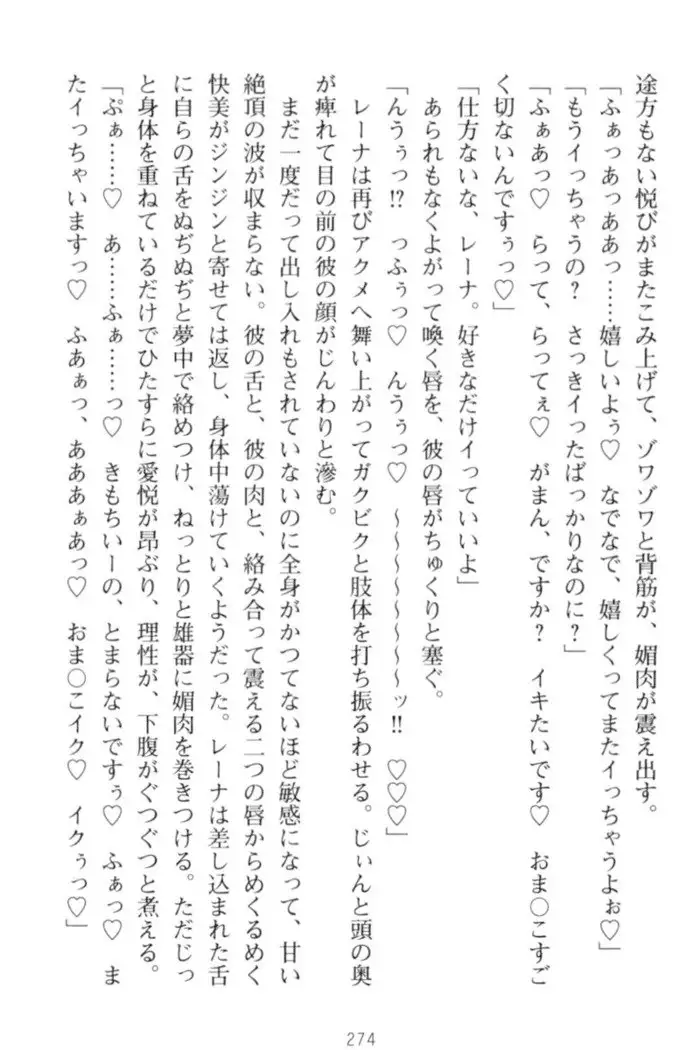 途方もない悦びがまたこみ上げて、ゾワゾワと背筋が、媚肉が震え出す。
「ふぁっあっああっ……嬉しいよぅ♡　なでなで、嬉しくってまたイっちゃうよぉ♡」
「もうイっちゃうの？　さっきイったばっかりなのに？」
「ふぁあっ♡　らって、らってぇ♡　がまん、ですか？　イキたいです♡　おま○こすご
く切ないんですぅっ♡」
「仕方ないな、レーナ。好きなだけイっていいよ」
あられもなくよがって喚く唇を、彼の唇がちゅくりと塞ぐ。
「んうぅっ!?　っふぅっ♡　んうぅっ♡　～～～～～～～ッ!!　♡♡♡」
レーナは再びアクメへ舞い上がってガクビクと肢体を打ち振るわせる。じぃんと頭の奥
が痺れて目の前の彼の顔がじんわりと滲む。
まだ一度だって出し入れもされていないのに全身がかつてないほど敏感になって、甘い
絶頂の波が収まらない。彼の舌と、彼の肉と、絡み合って震える二つの唇からめくるめく
快美がジンジンと寄せては返し、身体中蕩けていくようだった。レーナは差し込まれた舌
に自らの舌をぬぢぬぢと夢中で絡めつけ、ねっとりと雄器に媚肉を巻きつける。ただじっ
と身体を重ねているだけでひたすらに愛悦が昂ぶり、理性が、下腹がぐつぐつと煮える。
「ぷぁ……♡　あ……ふぁ……っ♡　きもちいーの、とまらないですぅ♡　ふぁっ♡　ま
たイっちゃいますっ♡　ふあぁっ、あああぁあっ♡　おま○こイク♡　イクぅっ♡」
274